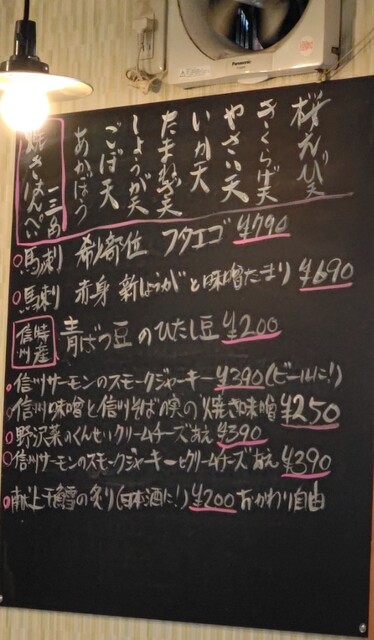 Panasonic
桜えび天
きくらげ天
やさい天
いか天
たまねぎ天
しょうが天
ごぼ天
あかぼう
一三角
焼きはんぺん
馬刺 希少部位 フタエゴ ¥790
馬刺 赤身 新しょうがと味噌たまり ¥690
信州特産 青ばつ豆のひたし豆 ¥200
信州サーモンのスモークジャーキー ¥390(ビールに!)
信州味噌と信州そばの実の焼き味噌 ¥250
野沢菜のくんせいクリームチーズあえ ¥390
信州サーモンのスモークジャーキーとクリームチーズあえ ¥390
献上干鱈の炙り(日本酒に!) ¥200 おかわり自由